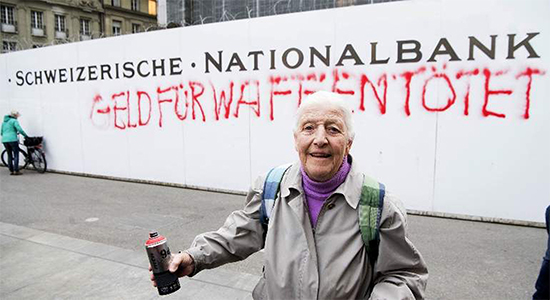 · SCHWEIZERISCHE · NATIONALBANK ·
GELD FÜR WAFFEN TÖTET
94